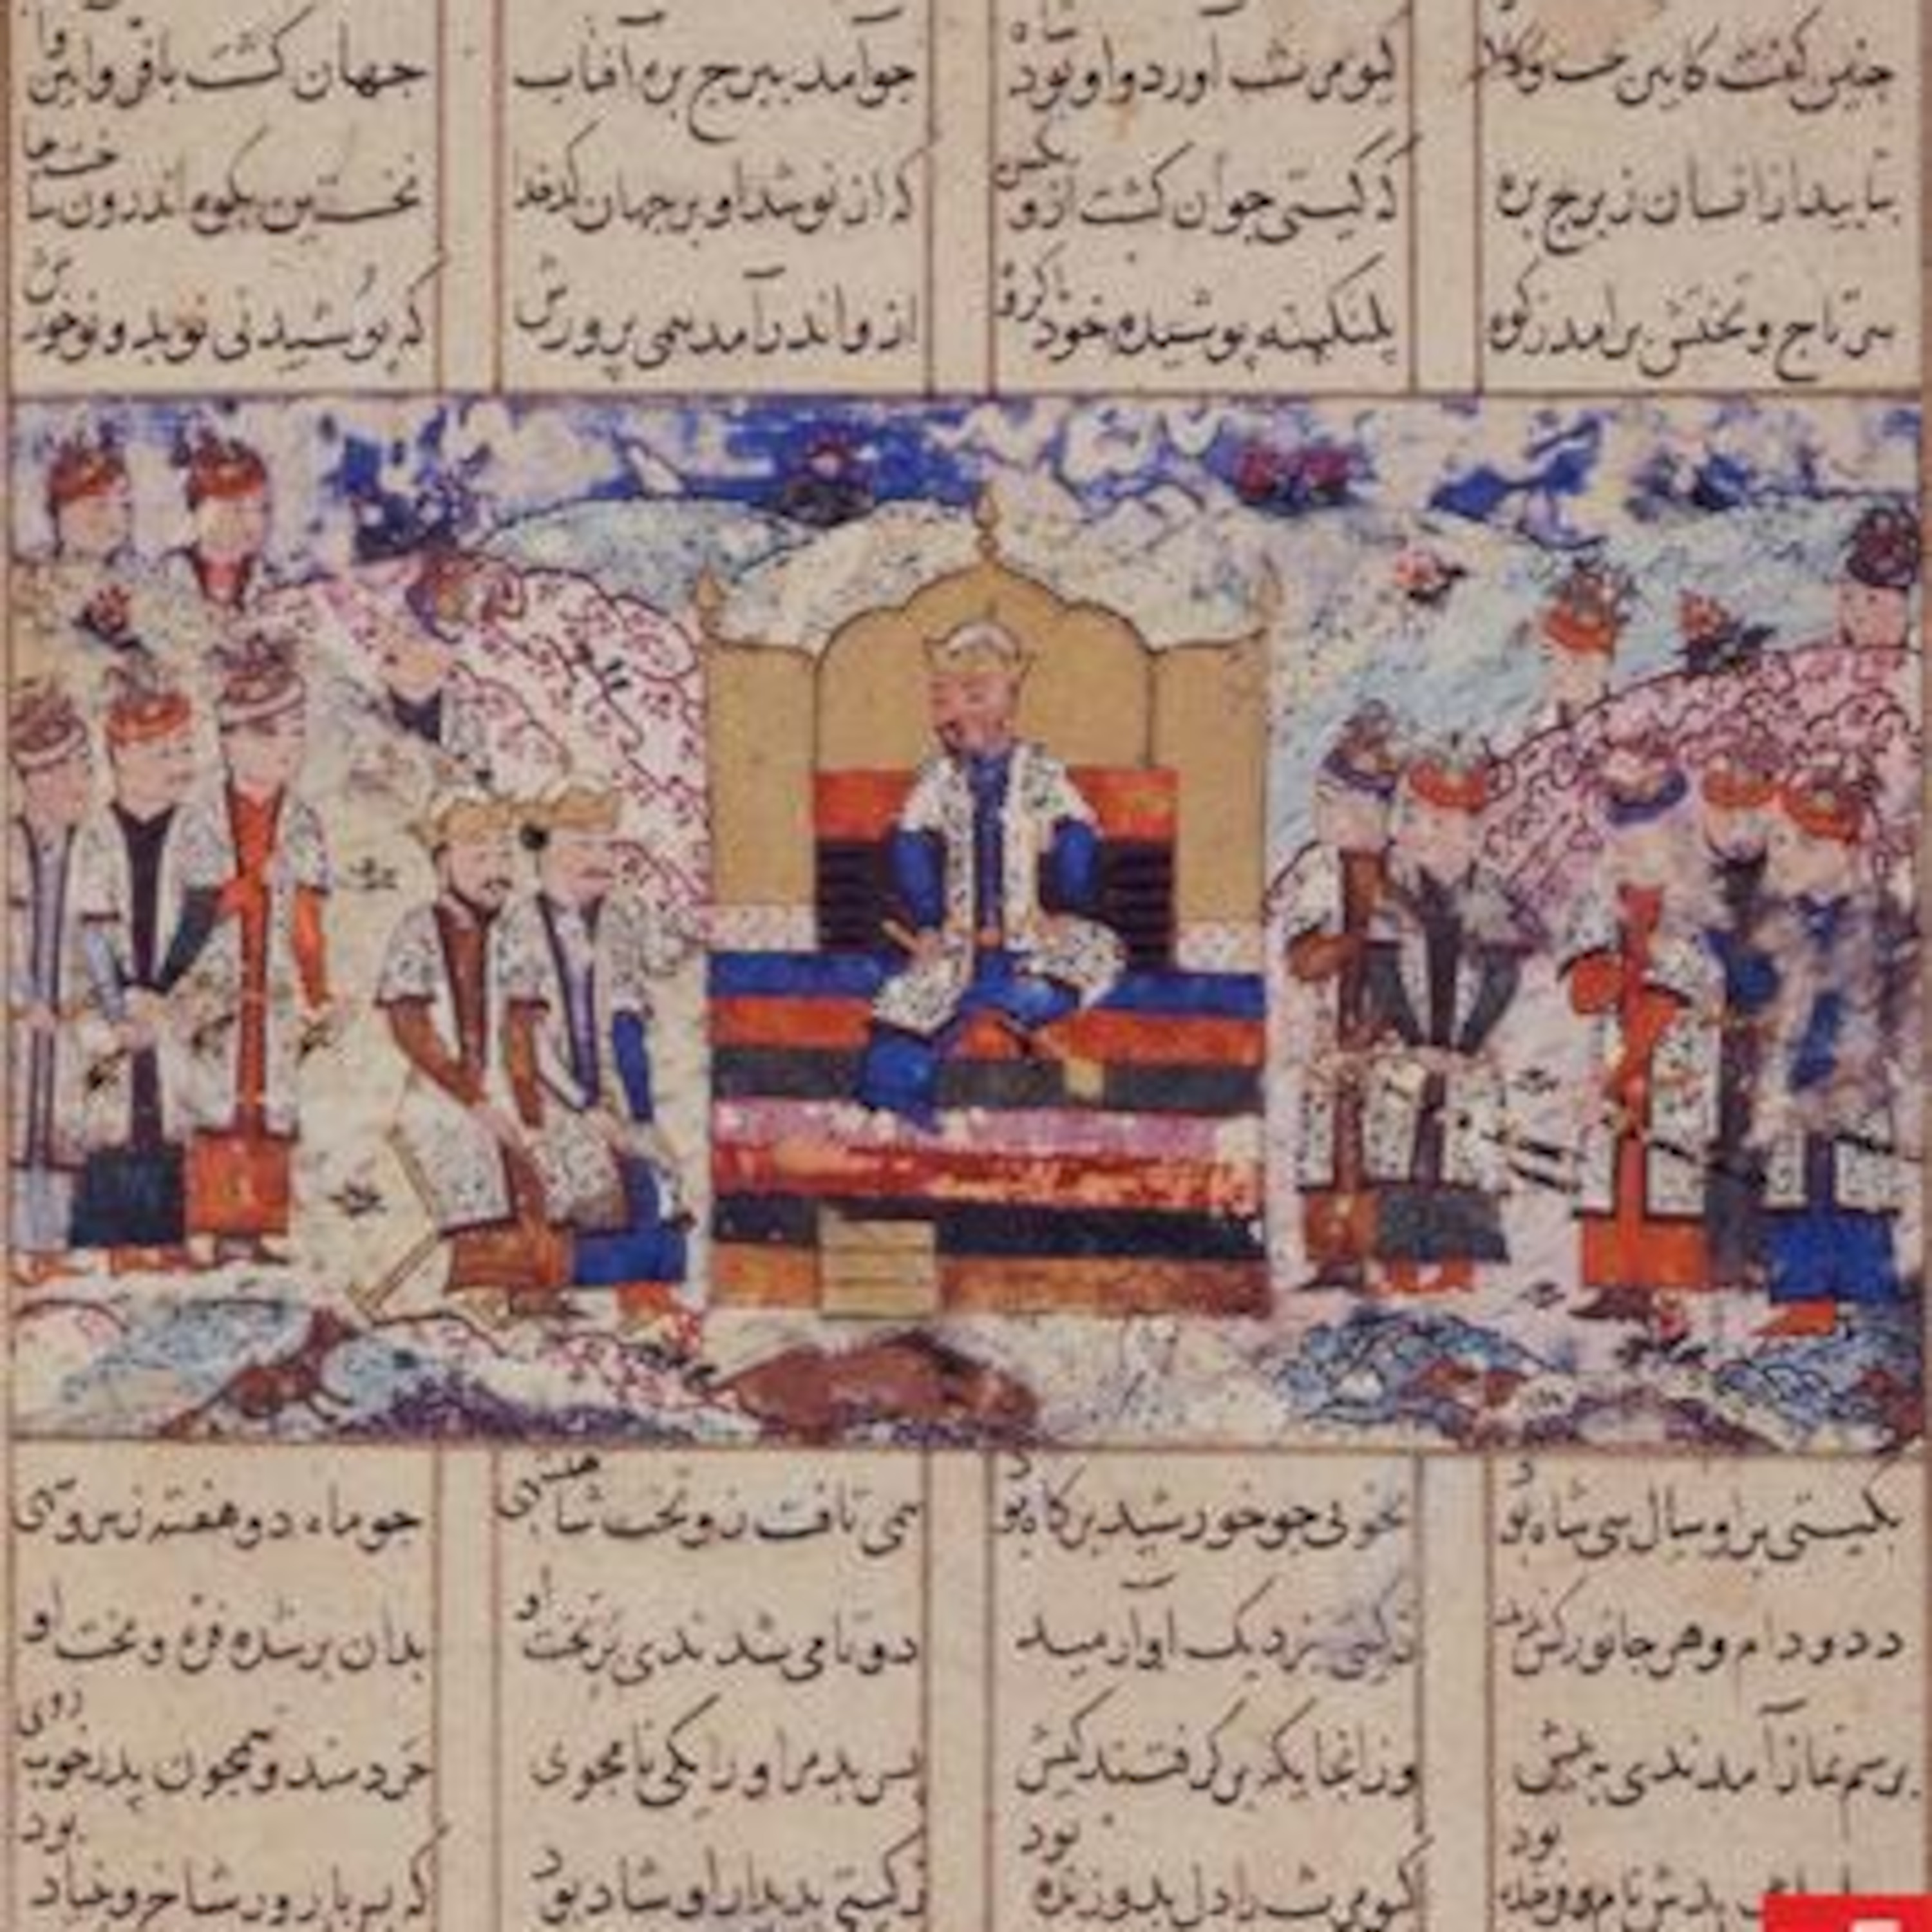 جنین کفت کایین تخت وکلاه کیومرث آورد واو بود جوآمد ببرج بره آفتاب جهان کشت بافر وآیین
بتابید ازانسان زبرج بره که کیتی جوان کشت ازو که ازنو شد او بر جهان کدخدا نخستین بکوه اندرون ساخت جا
سر تاج وتختش برامد زکوه بلنکینه پوشیده خود ازو اندرآمد همی پرورش که پوشیدنی نو بد ونو خورش
بکیتی براو سال سی شاه بود بخوبی جو خورشید برکاه بود همی تافت زو تخت شاهنشهی جو ماه دو هفته زسرو سهی
دد ودام وهر جانور کش بدید زکیتی بنزدیک او آرمید دوتا می شدندی بر تخت او بدان برشده فره وبخت او
برسم نماز آمدندی وزانجایکه برکرفتند کیش پس بد مراورا یکی نامجوی خردمند وهمجون پدر خوب روی
بدش نام بود کیومرث را دل بدو زنده بود زکیتی بدیدار او شاد بود که بس بارور شاخ وبنیاد بود